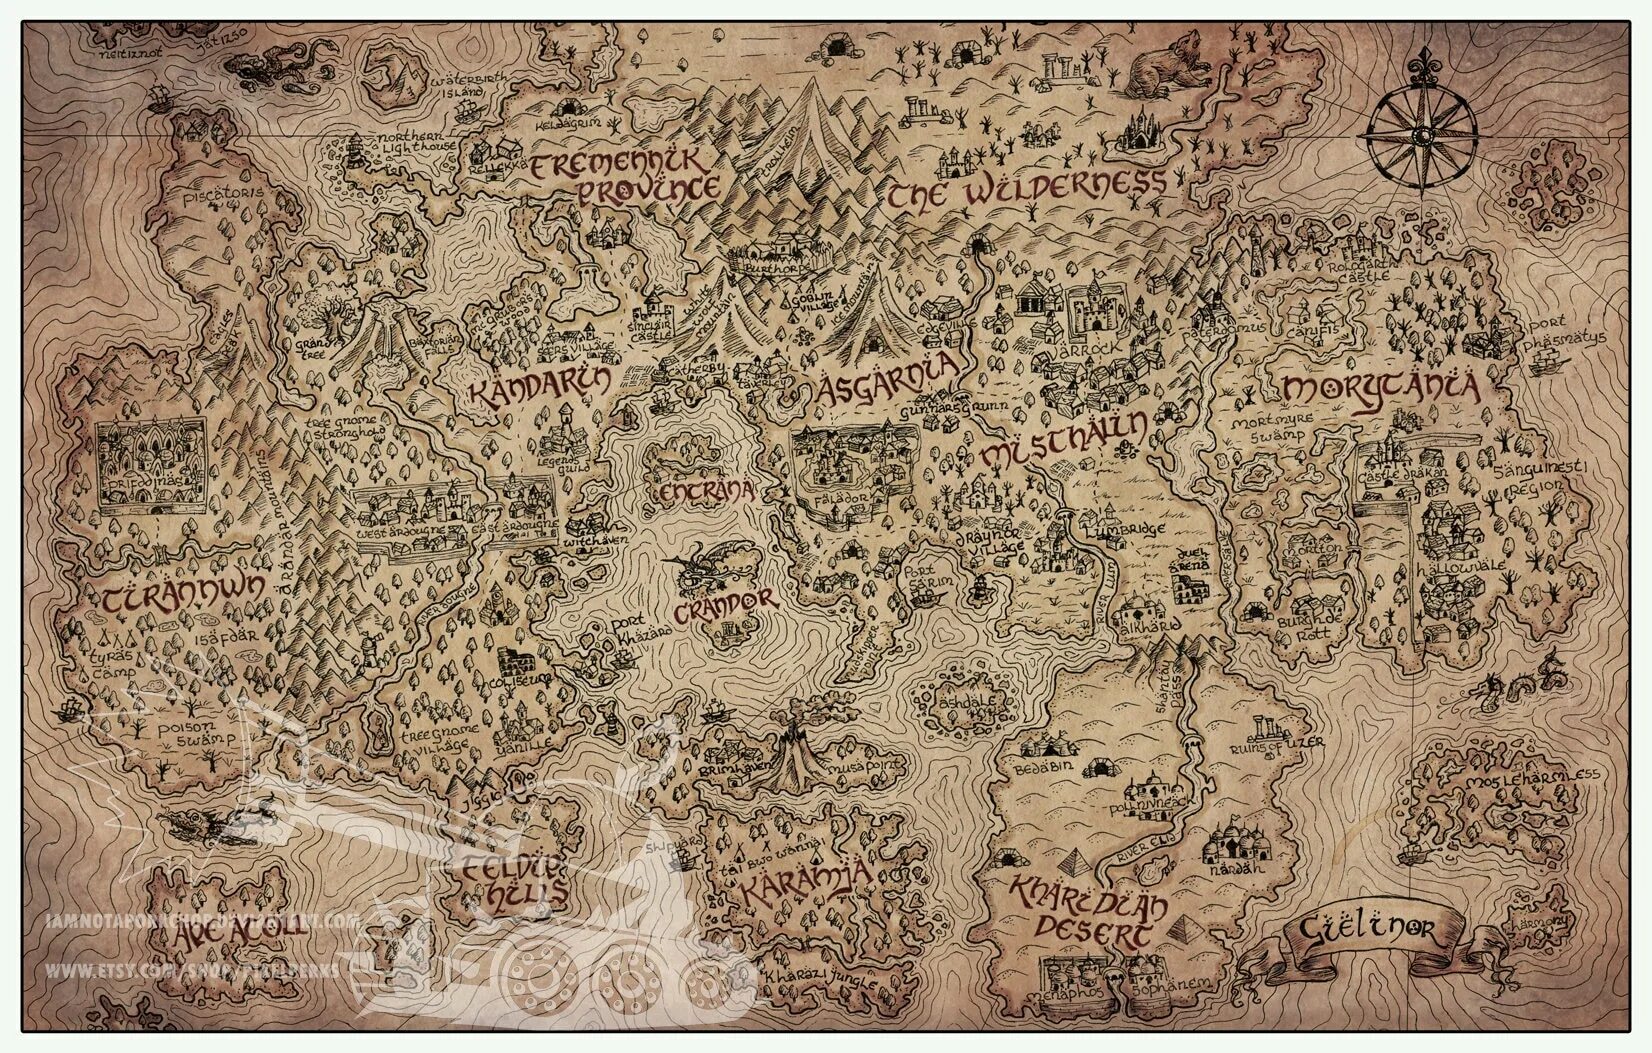 neitiznot
jatizso
waterbirth
island
keldagrim
northern
lighthouse
rellekka
fremennik
province
trollheim
the wilderness
piscatoris
burthorpe
goblin
village
white
wolf
mountain
ice mountain
edgeville
sinclair
castle
mcgrubors
wood
seers village
grand
tree
baxtorian
falls
eagles
peak
kandarin
catherby
taverley
asgarnia
gunnarsgrunn
varrock
paterdomus
canifis
port
phasmatys
morytania
misthalin
mortmyre
swamp
tree gnome
stronghold
legends
guild
entrana
falador
prifddinas
castle drakan
sanguinesti
region
arandar mountains
west ardougne
east ardougne
witchaven
draynor
village
lumbridge
duel
arena
mortton
hallowvale
tirannwn
isafdar
tyras
camp
river ardougne
crandor
port
khazard
port
sarim
river lum
alkharid
burgh de
rott
coliseum
tree gnome
village
yanille
poison
swamp
ashdale
shantay
pass
bedabin
ruins of uzer
brimhaven
musa point
mos leharmless
pollnivneach
jiggig
shipyard
tai bwo wannai
karamja
feldip
hills
river elid
nardah
kharidian
desert
ape atoll
IAMNOTAPORKCHOP.DEVIANTART.COM
WWW.ETSY.COM/SHOP/PIXELPERKS
kharazi jungle
menaphos
sophanem
gielinor
harmony